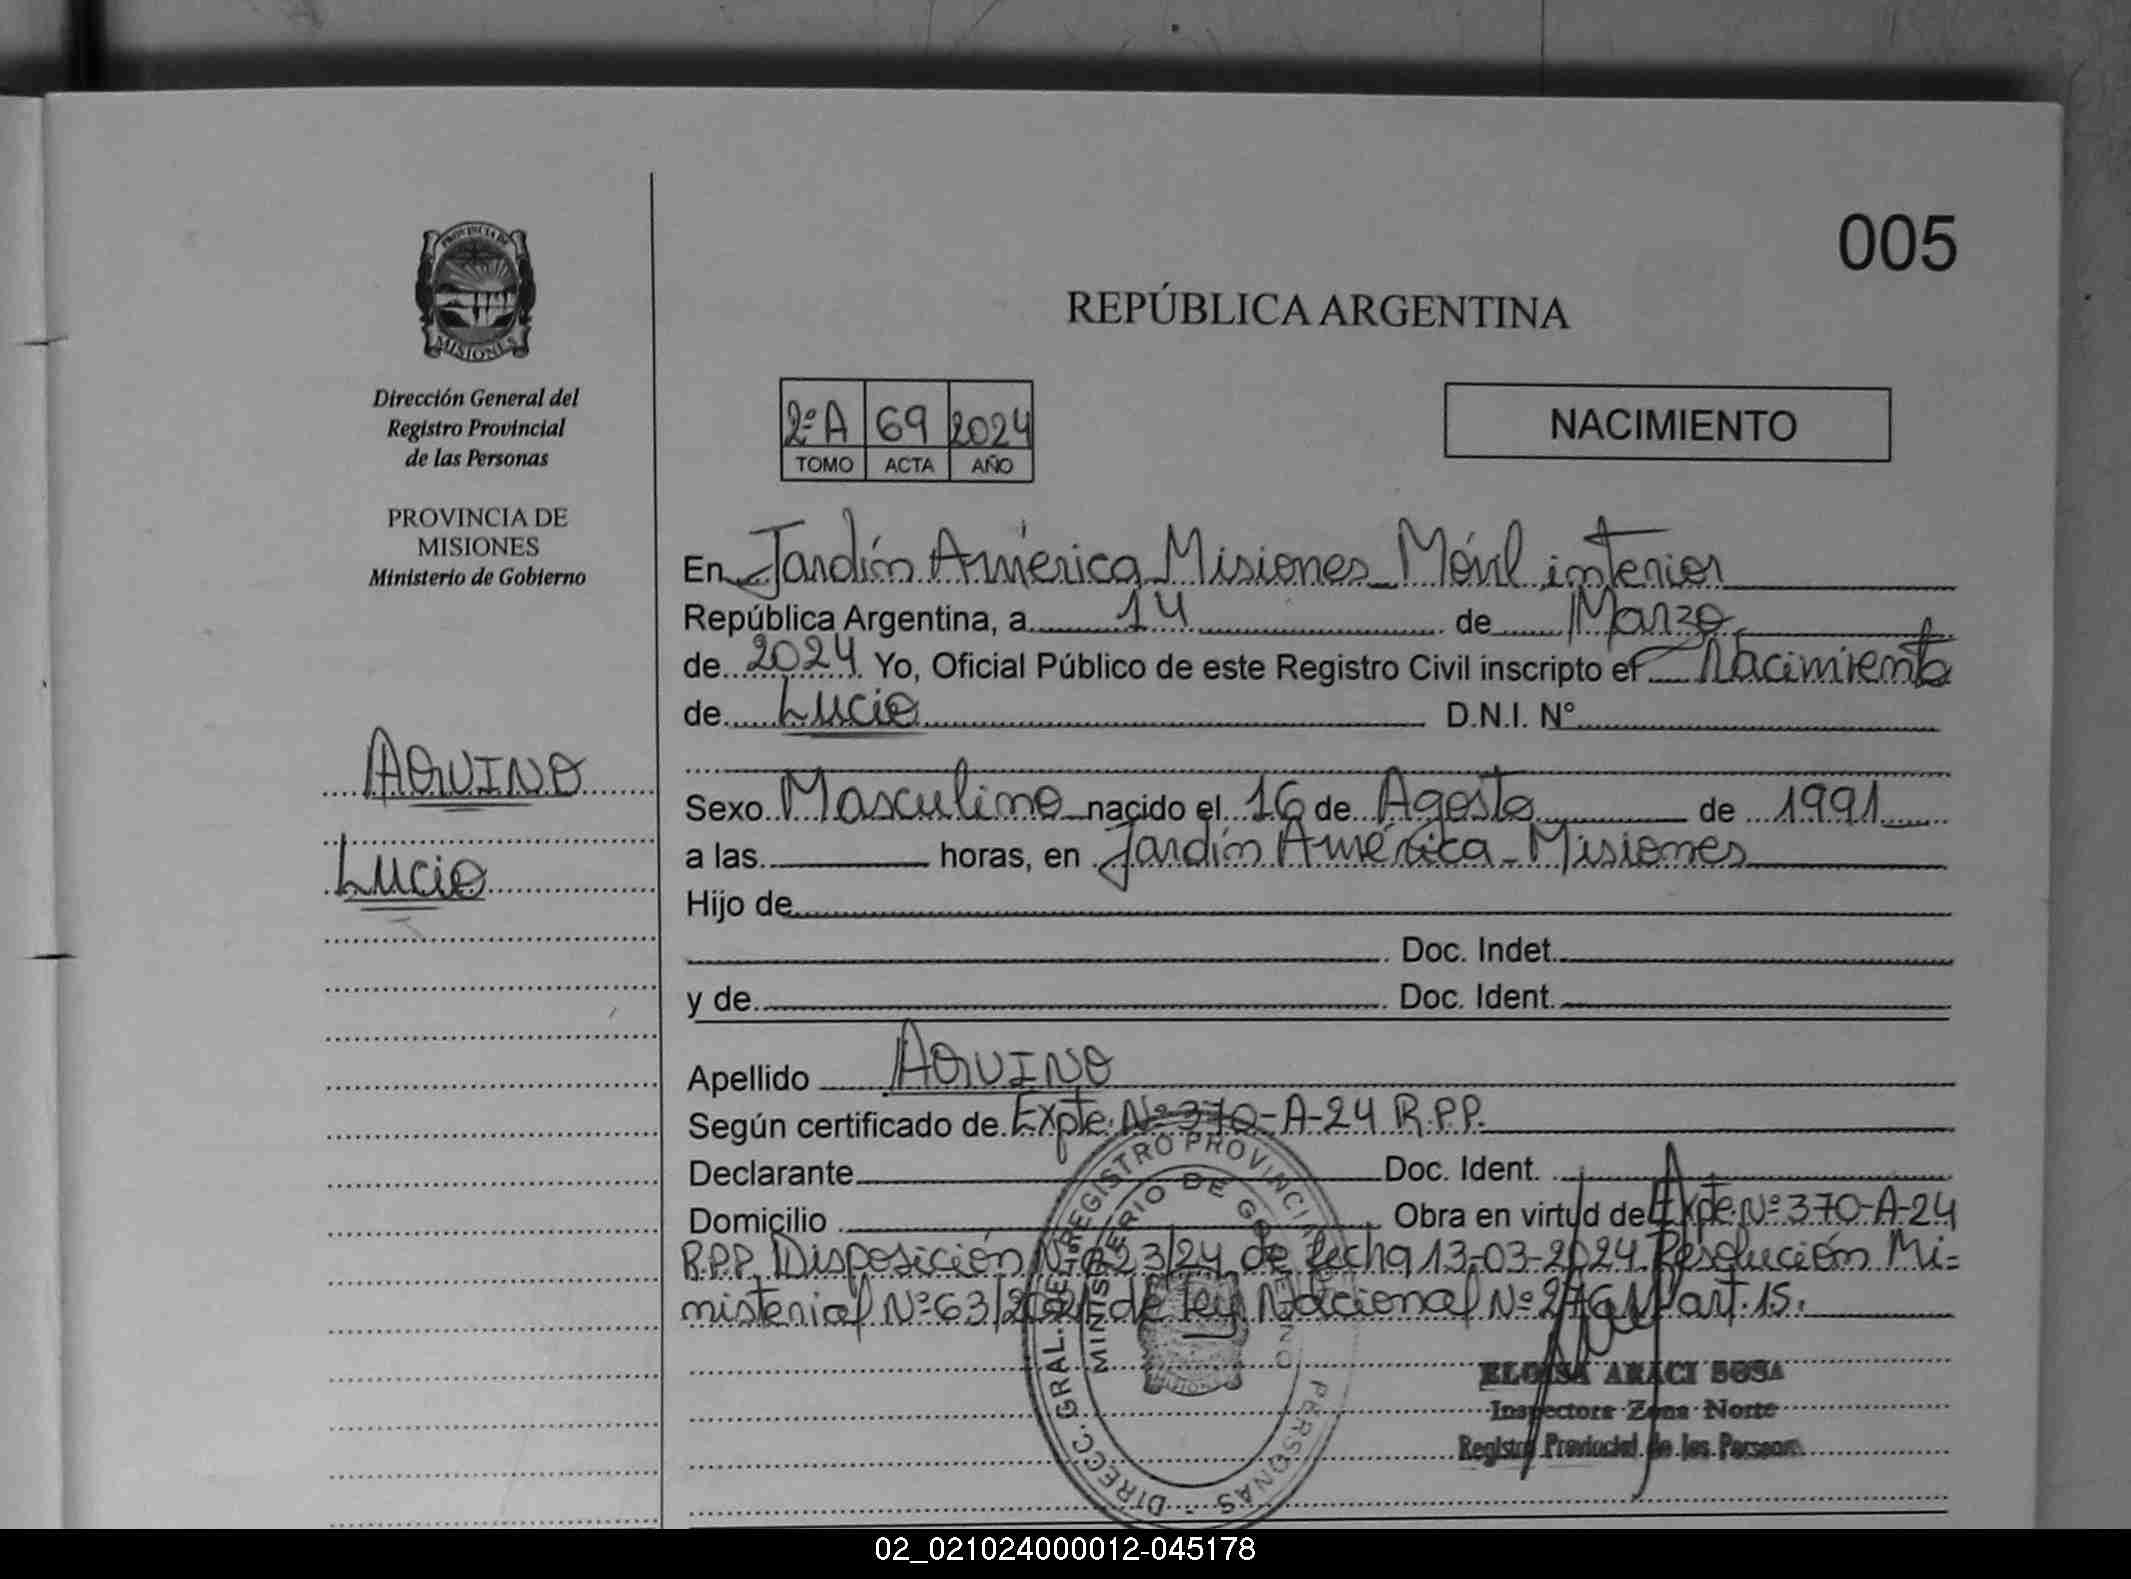 005
PROVINCIA DE
MISIONES
Dirección General del
Registro Provincial
de las Personas
PROVINCIA DE
MISIONES
Ministerio de Gobierno
AQUINO
Lucio
REPÚBLICA ARGENTINA
2º A 69 2024
TOMO ACTA AÑO
NACIMIENTO
En Jardín América Misiones Móvil interior
República Argentina, a 14 de Marzo
de 2024 Yo, Oficial Público de este Registro Civil inscripto el Nacimiento
de Lucio D.N.I. Nº
Sexo Masculino nacido el 16 de Agosto de 1991
a las horas, en Jardín América - Misiones
Hijo de
Doc. Indet.
y de Doc. Ident.
Apellido AQUINO
Según certificado de Expte. Nº 370-A-24 R.P.P.
Declarante Doc. Ident.
Domicilio Obra en virtud de Expte. Nº 370-A-24
R.P.P. Disposición Nº 23/24 de fecha 13-03-2024. Resolución Mi=
nisterial Nº 63/ de Ley Nacional Nº art. 15.
DIRECC. GRAL. DE REGISTRO PROVINCIAL PERSONAS
MINISTERIO DE GOBIERNO
MISIONES
ELOISA ARACI SOSA
Inspectora Zona Norte
Registro Provincial de las Personas
02_021024000012-045178